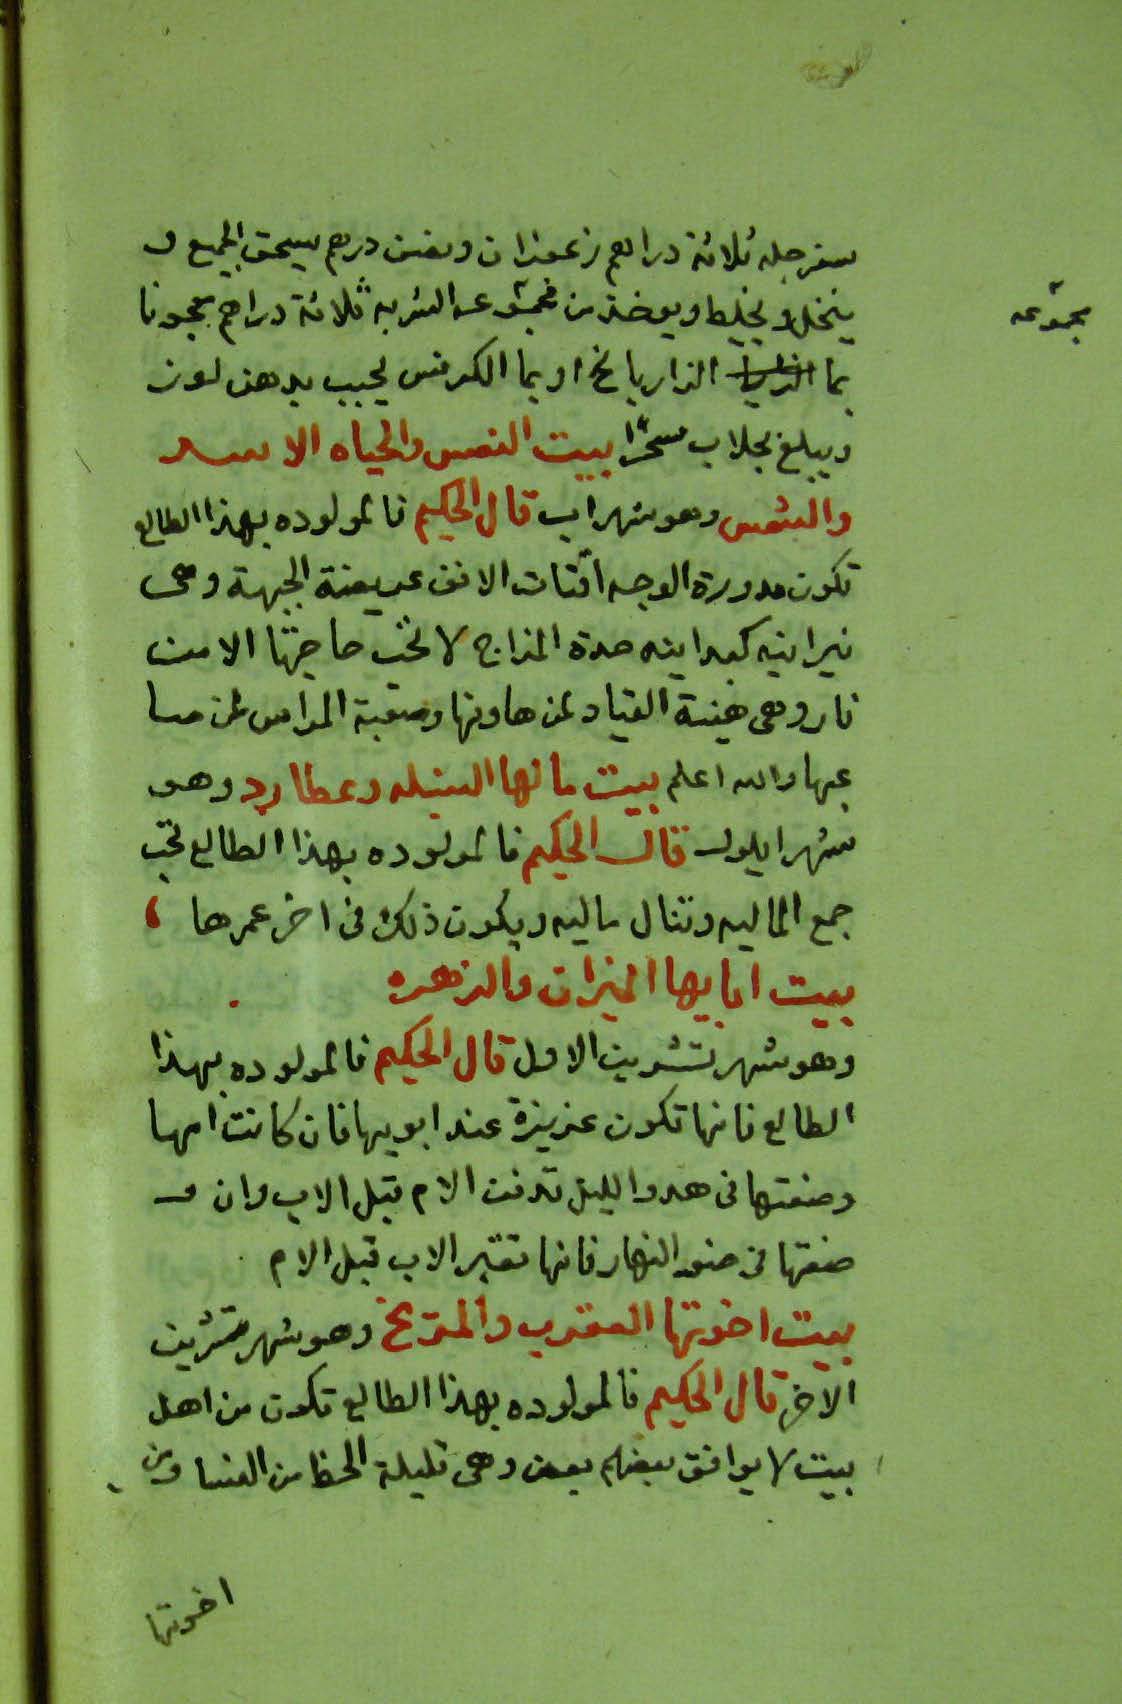 سفرجله ثلاثة دراهم زعفران ونصف درهم يسحق الجميع و
ينخلا ويخليط ويوخذ من مجموعه الشربه ثلاثة دراهم معجونا
مجموعه
بما الرازيانخ او بما الكرفس يحبب بدهن لوز
ويبلع بجلاب سحرًا بيت النفس والحياه الاسد
والشمس وهو شهر اب قال الحكيم فالمولوده بهذا الطالع
تكون مدورة الوجه اقنات الانف عريضة الجبهة وهى
نيرانيه كبدانيه حدة المزاج لا تحب حاجتها الا من
نار وهى هينة القياد لمن هاونها وصعبة المراس لمن صا
عبها والله اعلم بيت مالها السنبله وعطارد وهو
شهر ايلول قال الحكيم فالمولوده بهذا الطالع تحب
جمع الماليه وتنال ماليه ويكون ذلك فى اخر عمرها
بيت ابابيها الميزان والزهره
وهو شهر تشرين الاول قال الحكيم فالمولوده بهذا
الطالع فانها تكون عزيزة عند ابويها فان كانت امها
وضعتها فى هدو الليل تدفن الام قبل الاب وان و
ضعتها فى ضوء النهار فانها تقبر الاب قبل الام
بيت اخوتها العقرب والمريخ وهو شهر تشرين
الاخر قال الحكيم فالمولوده بهذا الطالع تكون من اهل
بيت لا يوافق بعضهم بعض وهى قليلة الحظ من النسا ومن
اخوتها